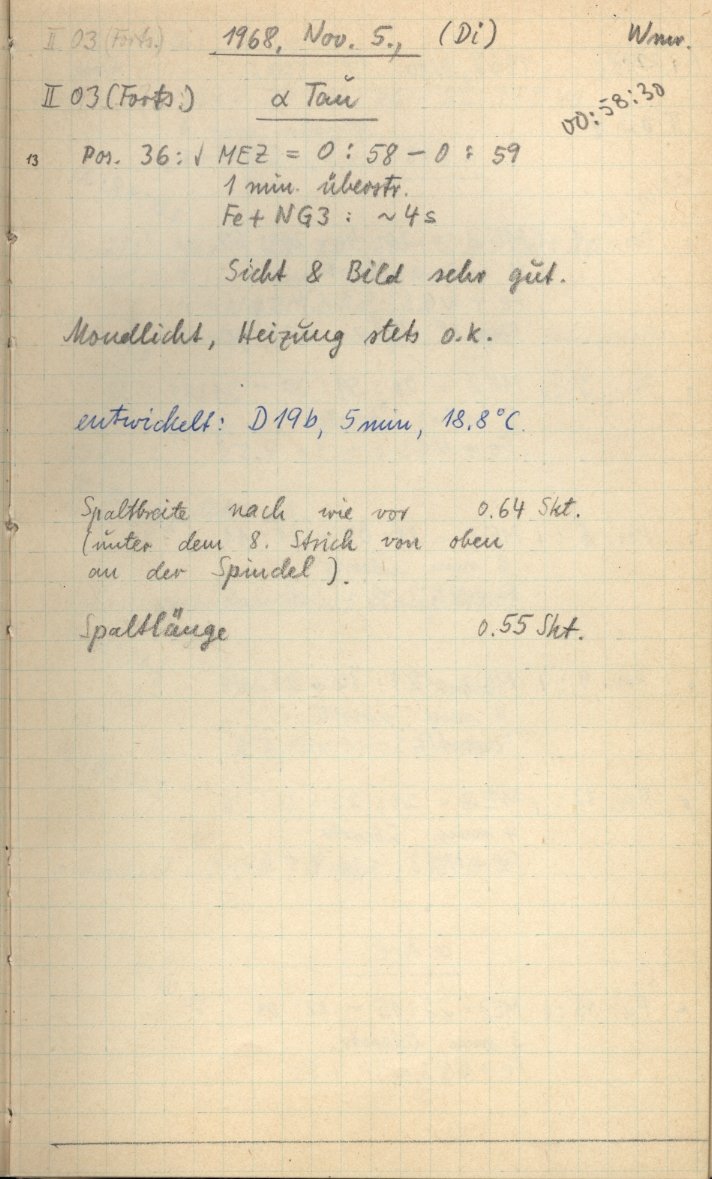 II 03 (Forts.) 1968, Nov. 5., (Di)
II 03 (Forts.) α Tau
00:58:30
13 Pos. 36: √ MEZ = 0 : 58 – 0 : 59
1 min. überstr.
Fe + NG3 : ~ 4 s
Sicht & Bild sehr gŭt.
Mondlicht, Heizŭng stets o.k.
entwickelt: D19b, 5 min, 18.8°C.
Spaltbreite nach wie vor 0.64 Skt.
(ŭnter dem 8. Strich von oben
an der Spindel).
Spaltlänge 0.55 Skt.